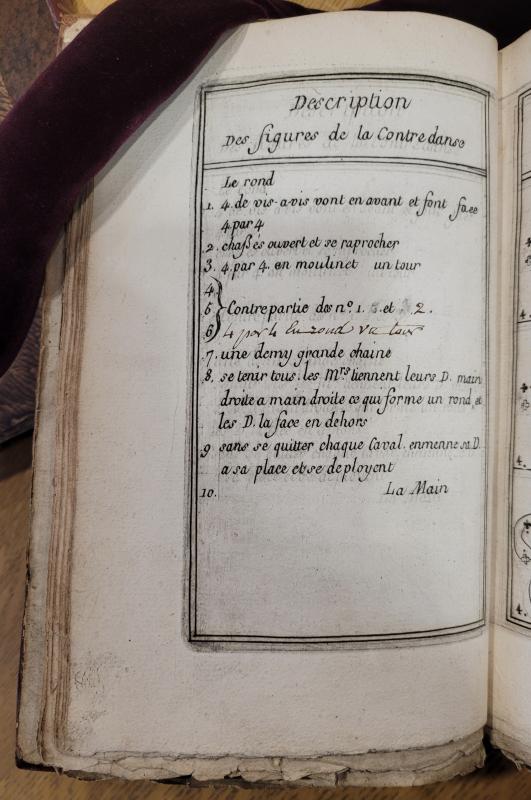 Description
Des figures de la Contredanse
Le rond
1. 4. de vis-a-vis vont en avant et font face
4 par 4
2. chaßés ouvert et se raprocher
3. 4. par 4. en moulinet un tour
4
5 Contrepartie des nº. 1. et 2.
6 4 par 4 en rond un tour
7. une demy grande chaine
8. se tenir tous. les Mrs tiennent leurs D. main
droite a main droite ce qui forme un rond, et
les D. la face en dehors
9 sans se quitter chaque Caval. enmenne sa D.
a sa place et se deployent
10. La Main